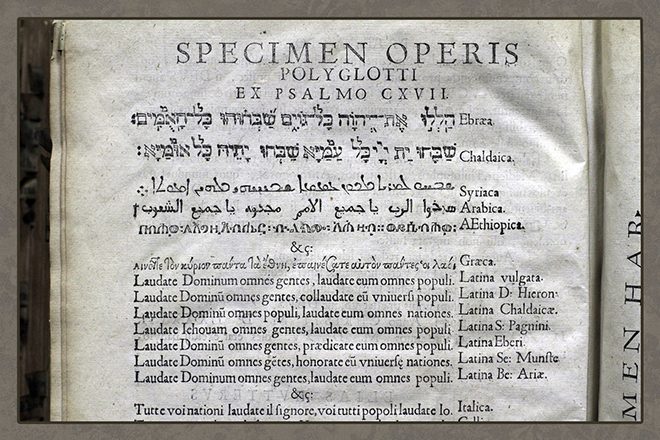 SPECIMEN OPERIS
POLYGLOTTI
EX PSALMO CXVII.
הַלְלוּ אֶת־יְהוָֹה כָּל־גּוֹיִם שַׁבְּחוּהוּ כָּל־הָאֻמִּים: Ebræa.
שבחו ית יי כל עממיא שבחו יתיה כל אומיא: Chaldaica.
Syriaca
يا جميع الامم مجدوه يا جميع الشعوب Arabica.
AEthiopica.
&c;
τὸν κύριον πάντα τὰ ἔθνη, ἐπαινέσατε αὐτὸν πάντες οἱ λαοί Græca.
Laudate Dominum omnes gentes, laudate eum omnes populi. Latina vulgata.
Laudate Dominũ omnes gentes, collaudate eũ vniuersi populi. Latina D: Hieron
Laudate Dominũ omnes populi, laudate eum omnes nationes. Latina Chaldaicæ.
Laudate Iehouam omnes gentes, laudate eum omnes populi. Latina S: Pagnini.
Laudate Dominũ omnes gentes, prædicate eum omnes populi. Latina Eberi.
Laudate Dominũ omnes gẽtes, honorate eũ vniuersę nationes. Latina Se: Munste
Laudate Dominum omnes gentes, laudate eum omnes populi. Latina Be: Ariæ.
&c;
Tutte voi nationi laudate il signore, voi tutti popoli laudate lo. Italica.
MEN HAR